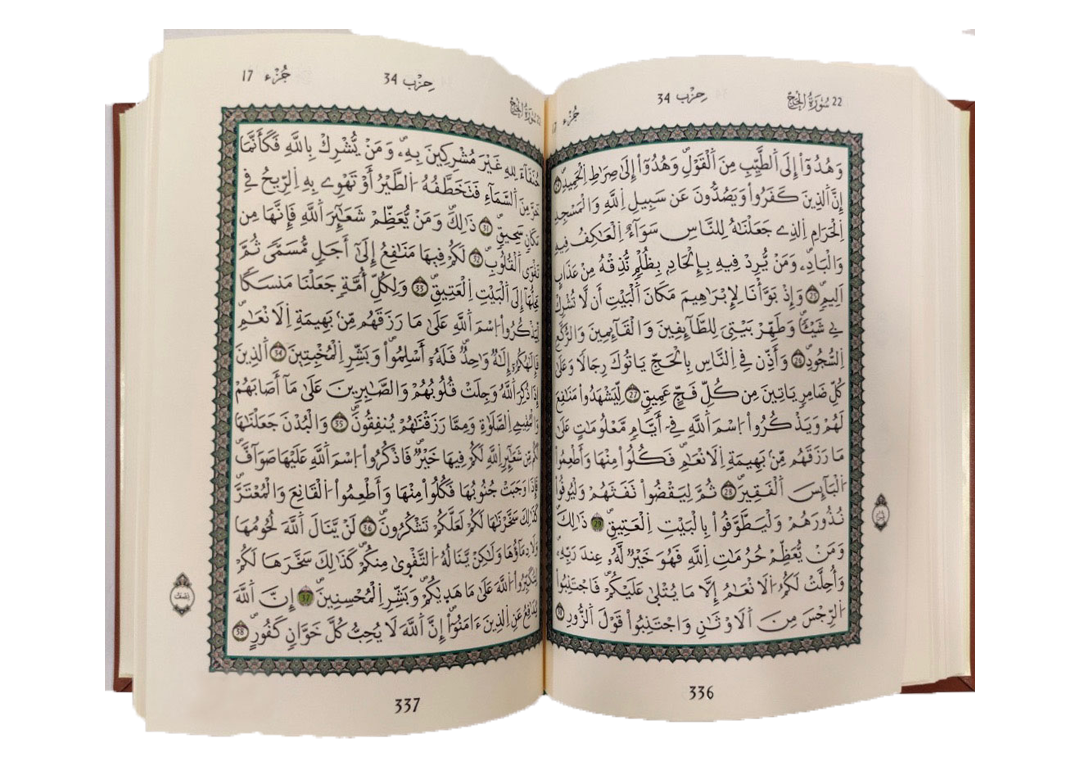 22 سُورَةُ الحَجِّ حِزْب 34 جُزْء 17
وَهُدُوٓاْ إِلَى اَلطَّيِّبِ مِنَ اَلْقَوْلِ وَهُدُوٓاْ إِلَىٰ صِرَٰطِ اِلْحَمِيدِ
إِنَّ اَلذِينَ كَفَرُواْ وَيَصُدُّونَ عَن سَبِيلِ اِللَّهِ وَالْمَسْجِدِ
اِلْحَرَامِ اِلذِے جَعَلْنَٰهُ لِلنَّاسِ سَوَآءٌ اِلْعَٰكِفُ فِيهِ
وَالْبَادِۦ وَمَنْ يُّرِدْ فِيهِ بِإِلْحَادِۢ بِظُلْمٖ نُّذِقْهُ مِنْ عَذَابٍ
اَلِيمٖ 25 وَإِذْ بَوَّأْنَا لِإِبْرَٰهِيمَ مَكَانَ اَلْبَيْتِ أَن لَّا تُشْرِكْ
بِے شَيْـٔاً وَطَهِّرْ بَيْتِيَ لِلطَّآئِفِينَ وَالْقَآئِمِينَ وَالرُّكَّعِ
اِلسُّجُودِ 26 وَأَذِّن فِے اِلنَّاسِ بِالْحَجِّ يَاتُوكَ رِجَالاً وَعَلَىٰ
كُلِّ ضَامِرٖ يَاتِينَ مِن كُلِّ فَجٍّ عَمِيقٖ 27 لِّيَشْهَدُواْ مَنَٰفِعَ
لَهُمْ وَيَذْكُرُواْ اُسْمَ اَللَّهِ فِےٓ أَيَّامٖ مَّعْلُومَٰتٍ عَلَىٰ
مَا رَزَقَهُم مِّنۢ بَهِيمَةِ اِلَانْعَٰمِ فَكُلُواْ مِنْهَا وَأَطْعِمُواْ
اُلْبَآئِسَ اَلْفَقِيرَ 28 ثُمَّ لِيَقْضُواْ تَفَثَهُمْ وَلْيُوفُواْ
نُذُورَهُمْ وَلْيَطَّوَّفُواْ بِالْبَيْتِ اِلْعَتِيقِ 29 ذَٰلِكَ
وَمَنْ يُّعَظِّمْ حُرُمَٰتِ اِللَّهِ فَهُوَ خَيْرٌ لَّهُۥ عِندَ رَبِّهِۦ
وَأُحِلَّتْ لَكُمُ اُلَانْعَٰمُ إِلَّا مَا يُتْلَىٰ عَلَيْكُمْ فَاجْتَنِبُواْ
اُلرِّجْسَ مِنَ اَلَاوْثَٰنِ وَاجْتَنِبُواْ قَوْلَ اَلزُّورِ
ثُمُن
336
22 سُورَةُ الحَجِّ حِزْب 34 جُزْء 17
حُنَفَآءَ لِلهِ غَيْرَ مُشْرِكِينَ بِهِۦ وَمَنْ يُّشْرِكْ بِاللَّهِ فَكَأَنَّمَا
خَرَّ مِنَ اَلسَّمَآءِ فَتَخَطَّفُهُ اُلطَّيْرُ أَوْ تَهْوِے بِهِ اِلرِّيحُ فِے
مَكَانٖ سَحِيقٖ 31 ذَٰلِكَ وَمَنْ يُّعَظِّمْ شَعَٰٓئِرَ اَللَّهِ فَإِنَّهَا مِن
تَقْوَى اَلْقُلُوبِ 32 لَكُمْ فِيهَا مَنَٰفِعُ إِلَىٰٓ أَجَلٖ مُّسَمّىٗ ثُمَّ
مَحِلُّهَآ إِلَى اَلْبَيْتِ اِلْعَتِيقِ 33 وَلِكُلِّ أُمَّةٖ جَعَلْنَا مَنسَكاً
لِّيَذْكُرُواْ اُسْمَ اَللَّهِ عَلَىٰ مَا رَزَقَهُم مِّنۢ بَهِيمَةِ اِلَانْعَٰمِ
فَإِلَٰهُكُمُۥٓ إِلَٰهٌ وَٰحِدٌ فَلَهُۥٓ أَسْلِمُواْ وَبَشِّرِ اِلْمُخْبِتِينَ 34 اَلذِينَ
إِذَا ذُكِرَ اَللَّهُ وَجِلَتْ قُلُوبُهُمْ وَالصَّٰبِرِينَ عَلَىٰ مَآ أَصَابَهُمْ
وَالْمُقِيمِے اِلصَّلَوٰةِ وَمِمَّا رَزَقْنَٰهُمْ يُنفِقُونَ 35 وَالْبُدْنَ جَعَلْنَٰهَا
لَكُم مِّن شَعَٰٓئِرِ اِللَّهِ لَكُمْ فِيهَا خَيْرٌ فَاذْكُرُواْ اُسْمَ اَللَّهِ عَلَيْهَا صَوَآفَّ
فَإِذَا وَجَبَتْ جُنُوبُهَا فَكُلُواْ مِنْهَا وَأَطْعِمُواْ اُلْقَانِعَ وَالْمُعْتَرَّ
كَذَٰلِكَ سَخَّرْنَٰهَا لَكُمْ لَعَلَّكُمْ تَشْكُرُونَ 36 لَنْ يَّنَالَ اَللَّهَ لُحُومُهَا
وَلَا دِمَآؤُهَا وَلَٰكِنْ يَّنَالُهُ اُلتَّقْوَىٰ مِنكُمْ كَذَٰلِكَ سَخَّرَهَا لَكُمْ
لِتُكَبِّرُواْ اُللَّهَ عَلَىٰ مَا هَدَىٰكُمْ وَبَشِّرِ اِلْمُحْسِنِينَ 37 إِنَّ اَللَّهَ
يُدَٰفِعُ عَنِ اِلذِينَ ءَامَنُوٓاْ إِنَّ اَللَّهَ لَا يُحِبُّ كُلَّ خَوَّانٖ كَفُورٍ 38
نِصْف
337